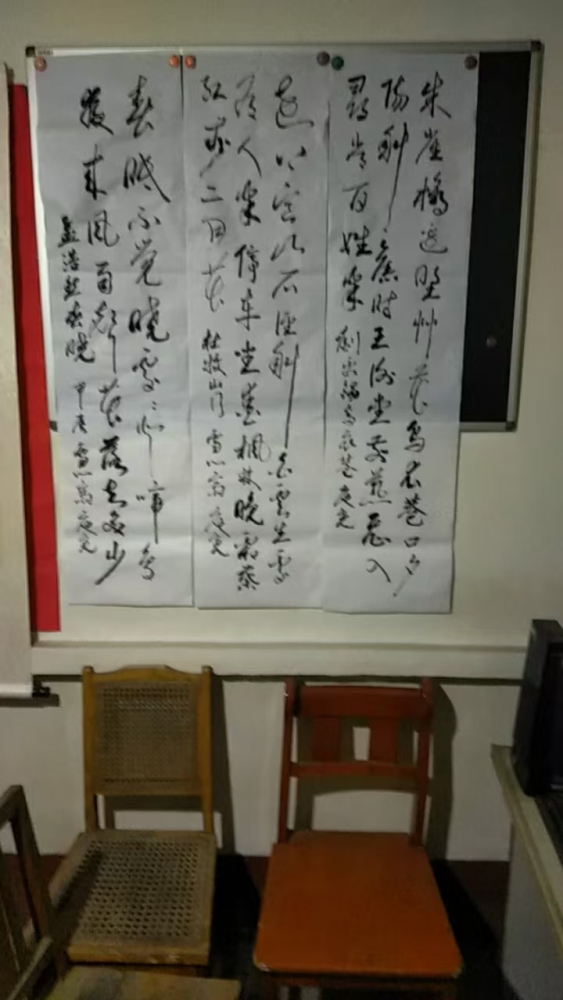 朱雀橋邊野艸花烏衣巷口夕
陽斜舊時王謝堂前燕飛入
尋常百姓家 劉禹錫烏衣巷
遠上寒山石徑斜白雲生處
有人家停車坐愛楓林晚霜葉
紅於二月花 杜牧山行
春眠不覺曉處〻聞啼鳥
夜来風雨聲花落知多少
孟浩然春曉 甲辰